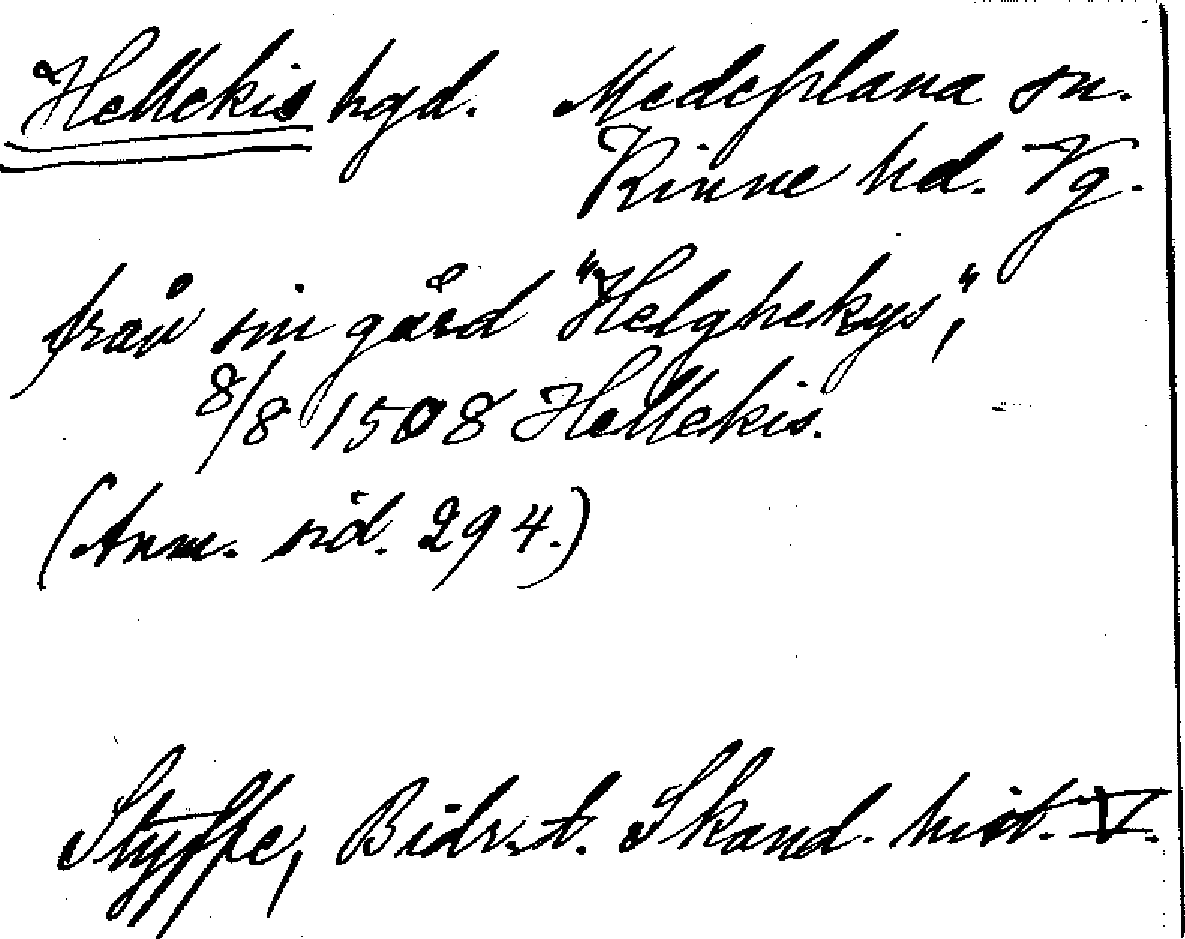 Hellekis hgd. Medeplana sn.
Kinne hd. Vg.
från sin gård "Helghekys",
8/8 1508 Hellekis.
(Anm. sid. 294.)
Styffe, Bidr. t. Skand. hist. V.